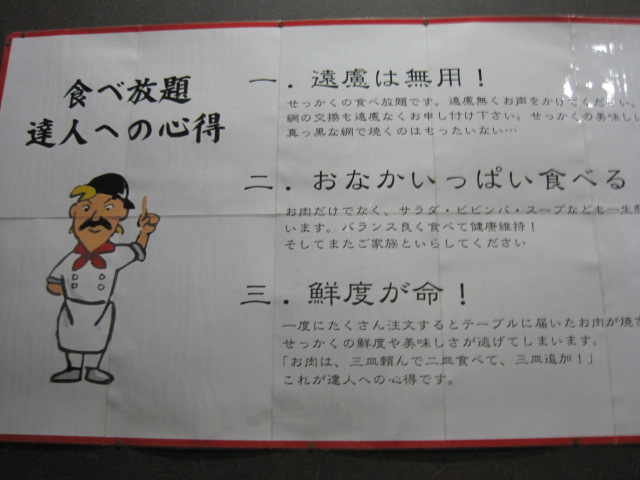 食べ放題
達人への心得
一．遠慮は無用！
せっかくの食べ放題です。遠慮無くお声をかけてください。
網の交換も遠慮なくお申し付け下さい。せっかくの美味しい
真っ黒な網で焼くのはもったいない…
二．おなかいっぱい食べる
お肉だけでなく、サラダ・ビビンバ・スープなども一生懸
います。バランス良く食べて健康維持！
そしてまたご家族といらしてください
三．鮮度が命！
一度にたくさん注文するとテーブルに届いたお肉が焼き
せっかくの鮮度や美味しさが逃げてしまいます。
「お肉は、三皿頼んで二皿食べて、三皿追加！」
これが達人への心得です。